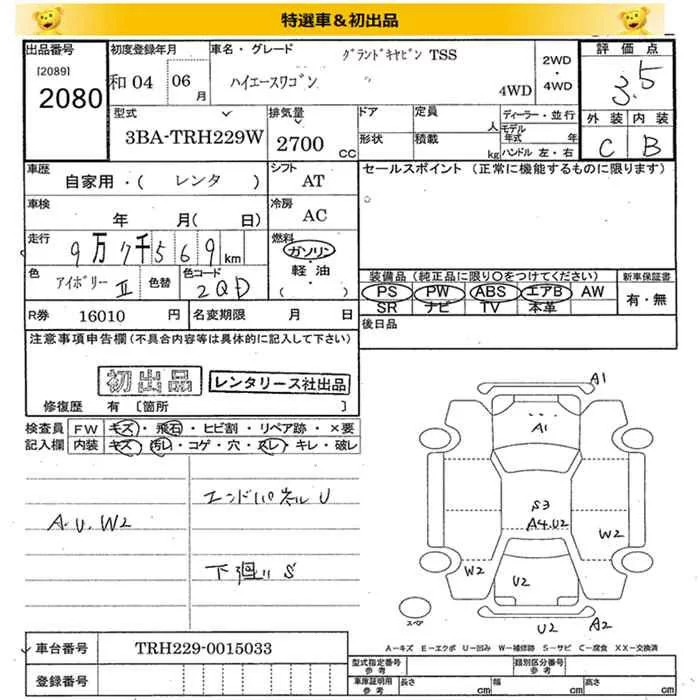 特選車&初出品
出品番号
[2089]
2080
初度登録年月
和04 06月
車名・グレード
グランドキャビン TSS
ハイエースワゴン
4WD
2WD・4WD
評価点
3.5
外装 内装
C B
型式
3BA-TRH229W
排気量
2700 CC
ドア
形状
定員 人
積載 kg
ディーラー・並行
モデル年式 年
ハンドル 左・右
車歴
自家用・( レンタ )
シフト
AT
セールスポイント (正常に機能するものに限ります)
車検
年 月( 日)
冷房
AC
走行
9万7千569km
燃料
ガソリン
軽・油
( ・ )
色
アイボリーII
色替
色コード
2QD
装備品 (純正品に限り〇をつけてください)
PS PW ABS エアB AW
SR ナビ TV 本革
新車保証書
有・無
R券 16010 円
名変期限 月 日
後日品
注意事項申告欄 (不具合内容等は具体的に記入して下さい)
初出品
レンタリース社出品
修復歴 有 [箇所 ]
検査員記入欄
FW キズ・飛石・ヒビ割・リペア跡・×要
内装 キズ・汚れ・コゲ・穴・スレ・キレ・破レ
エンドパネル U
A.U.W2
下廻り S
A1
A1
S3
A4.U2
W2
W2
U2
U2
A2
スペア
A-キズ E-エクボ U-凹み W-補修跡 S-サビ C-腐食 XX-交換済
車台番号 TRH229-0015033
登録番号
型式指定番号参考
類別区分番号参考
車庫証明用参考
長さ cm
幅 cm
高さ cm